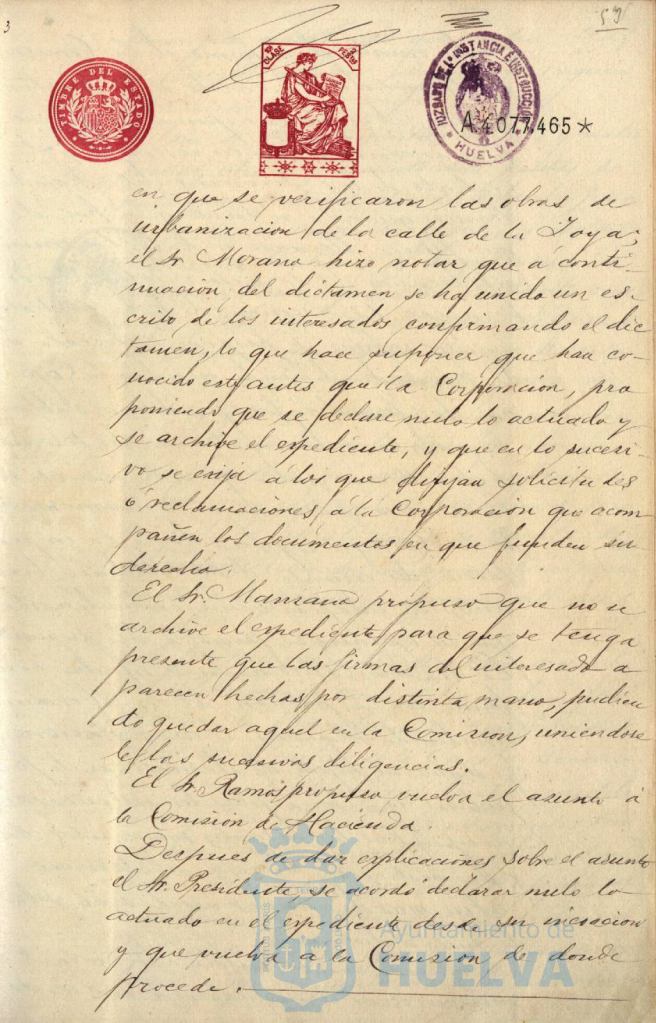 3
59
TIMBRE DEL ESTADO
CLASE
PESETAS
JUZGADO DE 1ª INSTANCIA É INSTRUCCION
HUELVA
A.4077.465*
en que se verificaron las obras de
urbanización de la calle de la Joya;
el Sr Morano hizo notar que á conti-
nuacion del dictámen se ha unido un es-
crito de los interesados confirmando el dic
tamen, lo que hace suponer que han co-
nocido este antes que la Corporación, pro
poniendo que se declare nulo lo actuado y
se archive el espediente, y que en lo sucesi-
vo se exija á los que dirijan solicitudes
ó reclamaciones á la Corporación que acom
pañen los documentos en que funden su
derecho.
El Sr. Manzano propuso que no se
archive el espediente para que se tenga
presente que las firmas del interesado a
parecen hechas por distinta mano, pudien
do quedar aquel en la Comision, uniendose
le las sucesivas diligencias.
El Sr. Ramos propuso vuelva el asunto á
la Comisión de Hacienda.
Despues de dar esplicaciones sobre el asunto
el Sr. Presidente, se acordó declarar nulo lo
actuado en el espediente desde su incoacion
y que vuelva á la Comision de donde
procede.
Ayuntamiento de
HUELVA